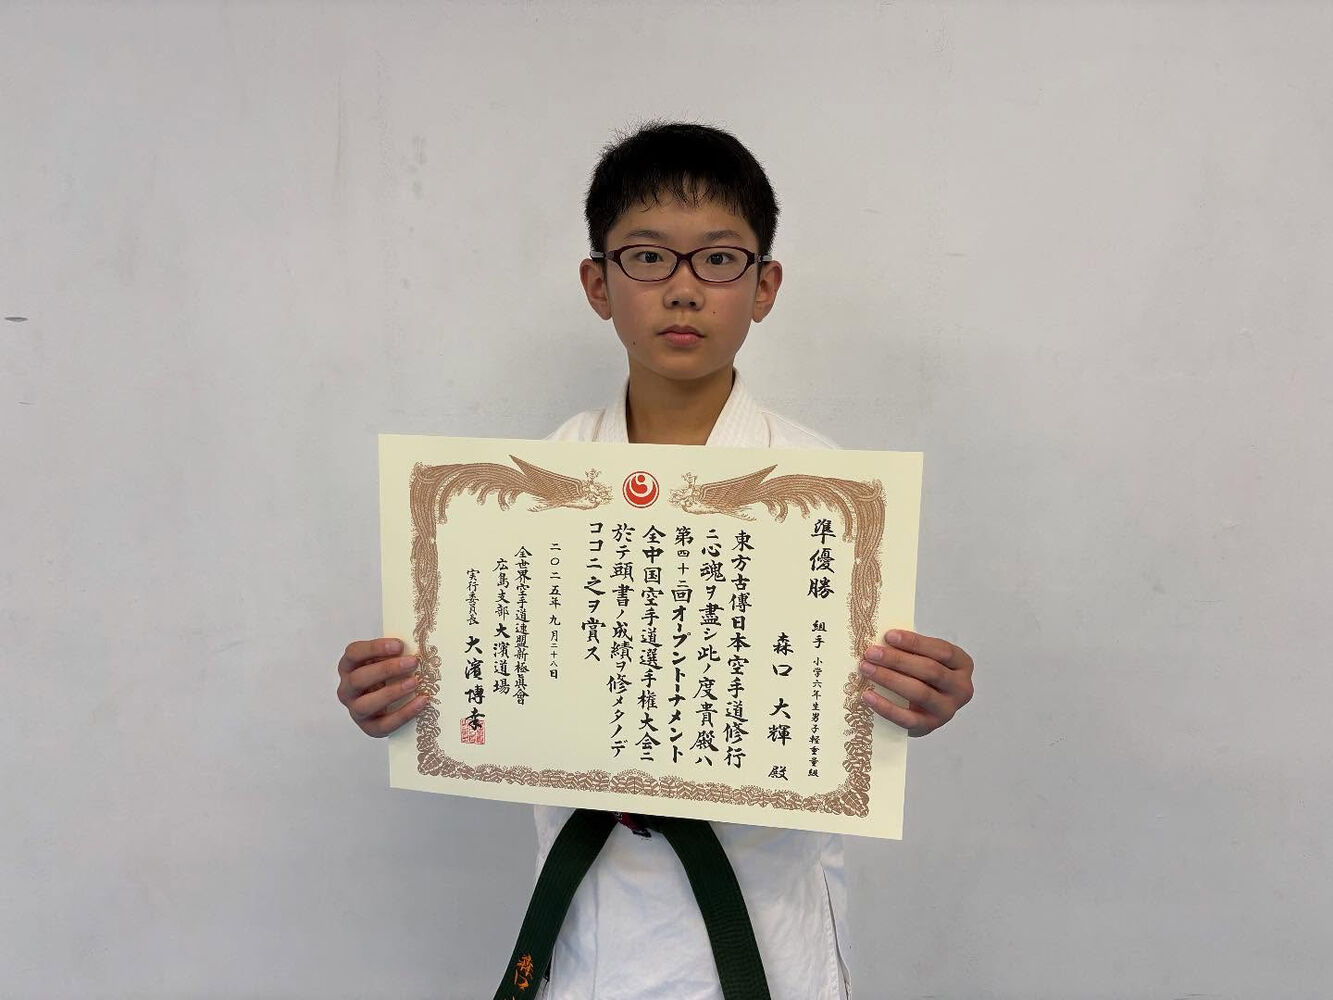 準優勝
組手 小学六年生男子軽重量級
森口 大輝 殿
東方古傳日本空手道修行
ニ心魂ヲ盡シ此ノ度貴殿ハ
第四十二回オープントーナメント
全中国空手道選手権大会ニ
於テ頭書ノ成績ヲ修メタノデ
ココニ之ヲ賞ス
二〇二五年 九月二十八日
全世界空手道連盟新極真會
広島支部 大濱道場
実行委員長 大濱 博幸
森口